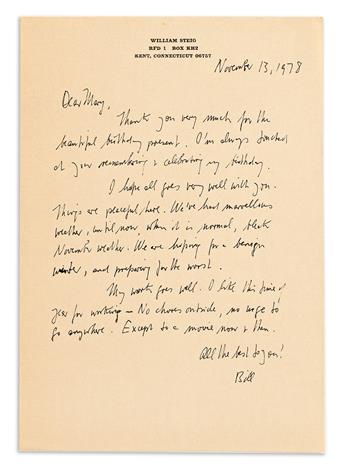 WILLIAM STEIG
RFD 1 BOX KH2
KENT, CONNECTICUT 06757
November 13, 1978
Dear Mary,
Thank you very much for the
beautiful birthday present. I'm always touched
at your remembering & celebrating my birthday.
I hope all goes very well with you.
Things are peaceful here. We've had marvellous
weather, until now, when it is normal, bleak
November weather. We are hoping for a benign
winter, and preparing for the worst.
My work goes well. I like this time of
year for working – No chores outside, no urge to
go anywhere. Except to a movie now & then.
All the best to you!
Bill